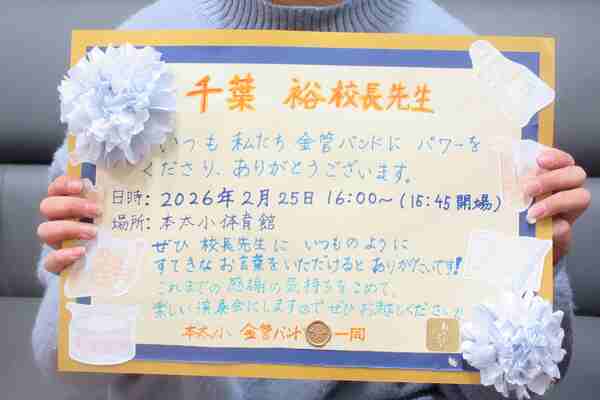 千葉 裕校長先生
いつも 私たち 金管バンドに パワーを
くださり、ありがとうございます。
日時: 2026年2月25日 16:00~(15:45開場)
場所: 本太小体育館
ぜひ 校長先生に いつものように
すてきな お言葉をいただけると ありがたいです!
これまでの 感謝の気持ちをこめて、
楽しい演奏会にしますので ぜひ お越しください!
本太小 金管バンド 一同